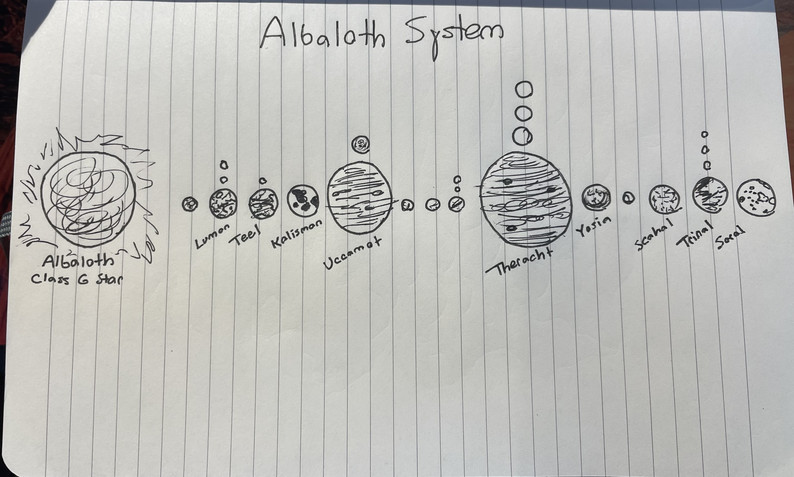 Albaloth System
Albaloth
Class G Star
Lumon
Teel
Kalisman
Uccamot
Theracht
Yosin
Scahal
Trinal
Socal